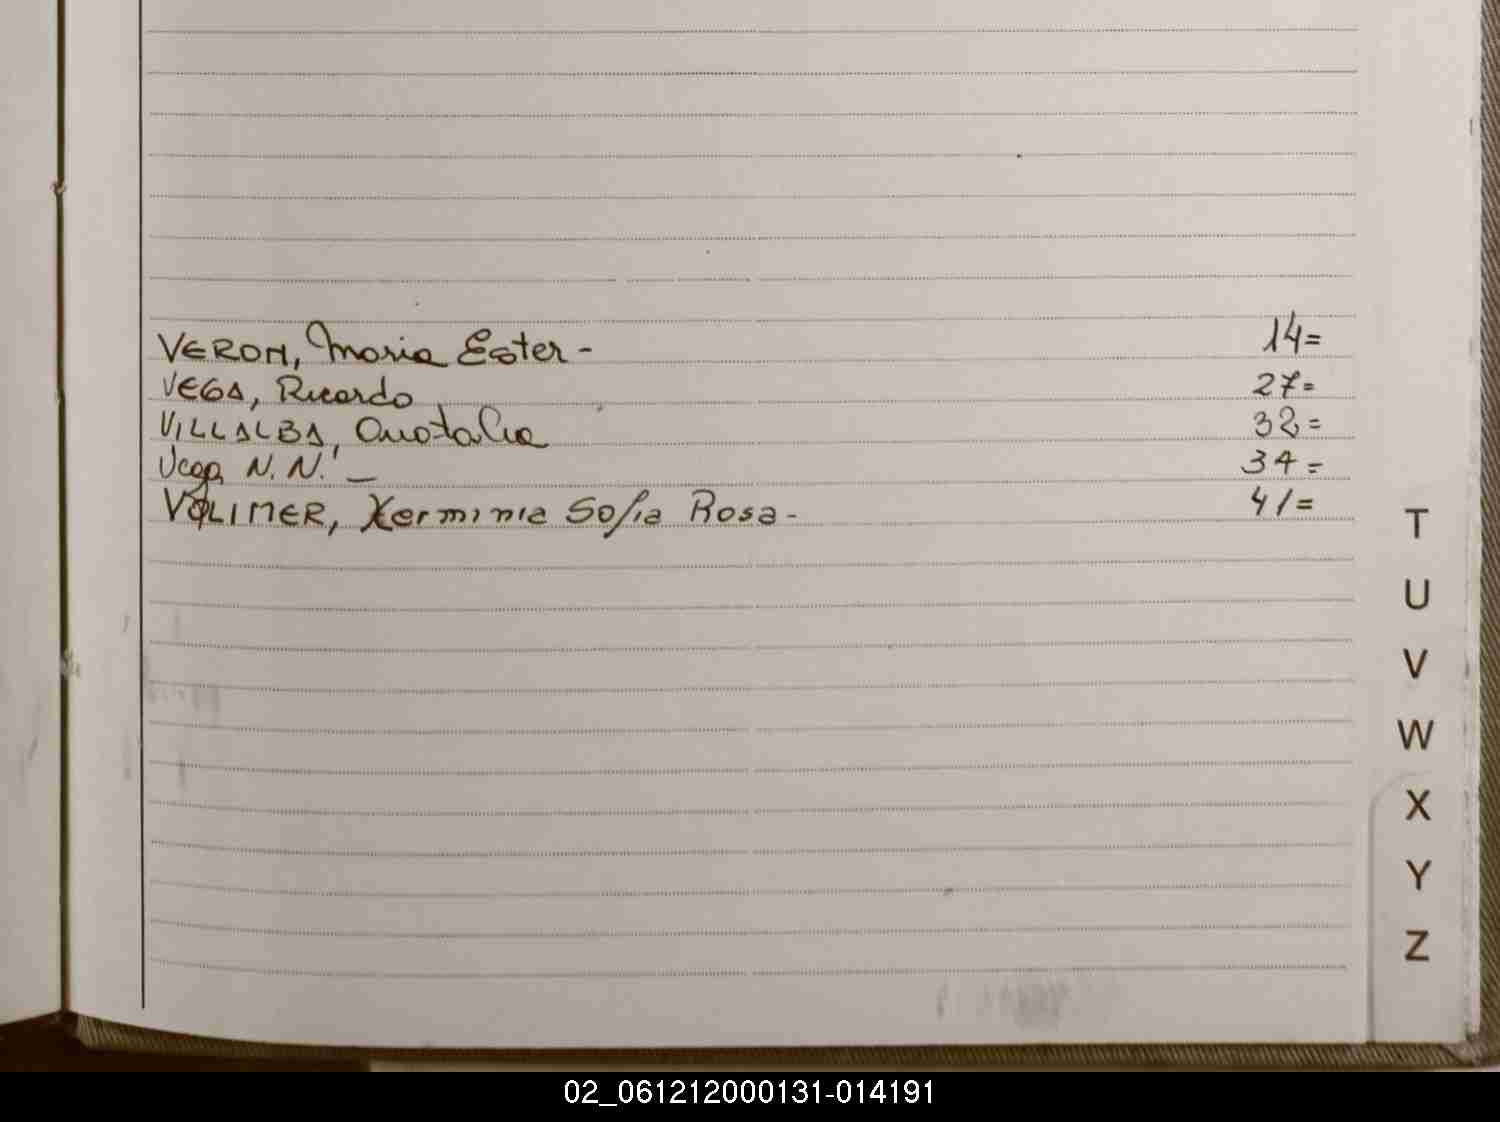 VERON, Maria Ester - 14=
VEGA, Ricardo 27=
VILLALBA, Anatalia 32=
Vega N. N. - 34=
VOLIMER, Herminia Sofia Rosa - 41=
T
U
V
W
X
Y
Z
02_061212000131-014191